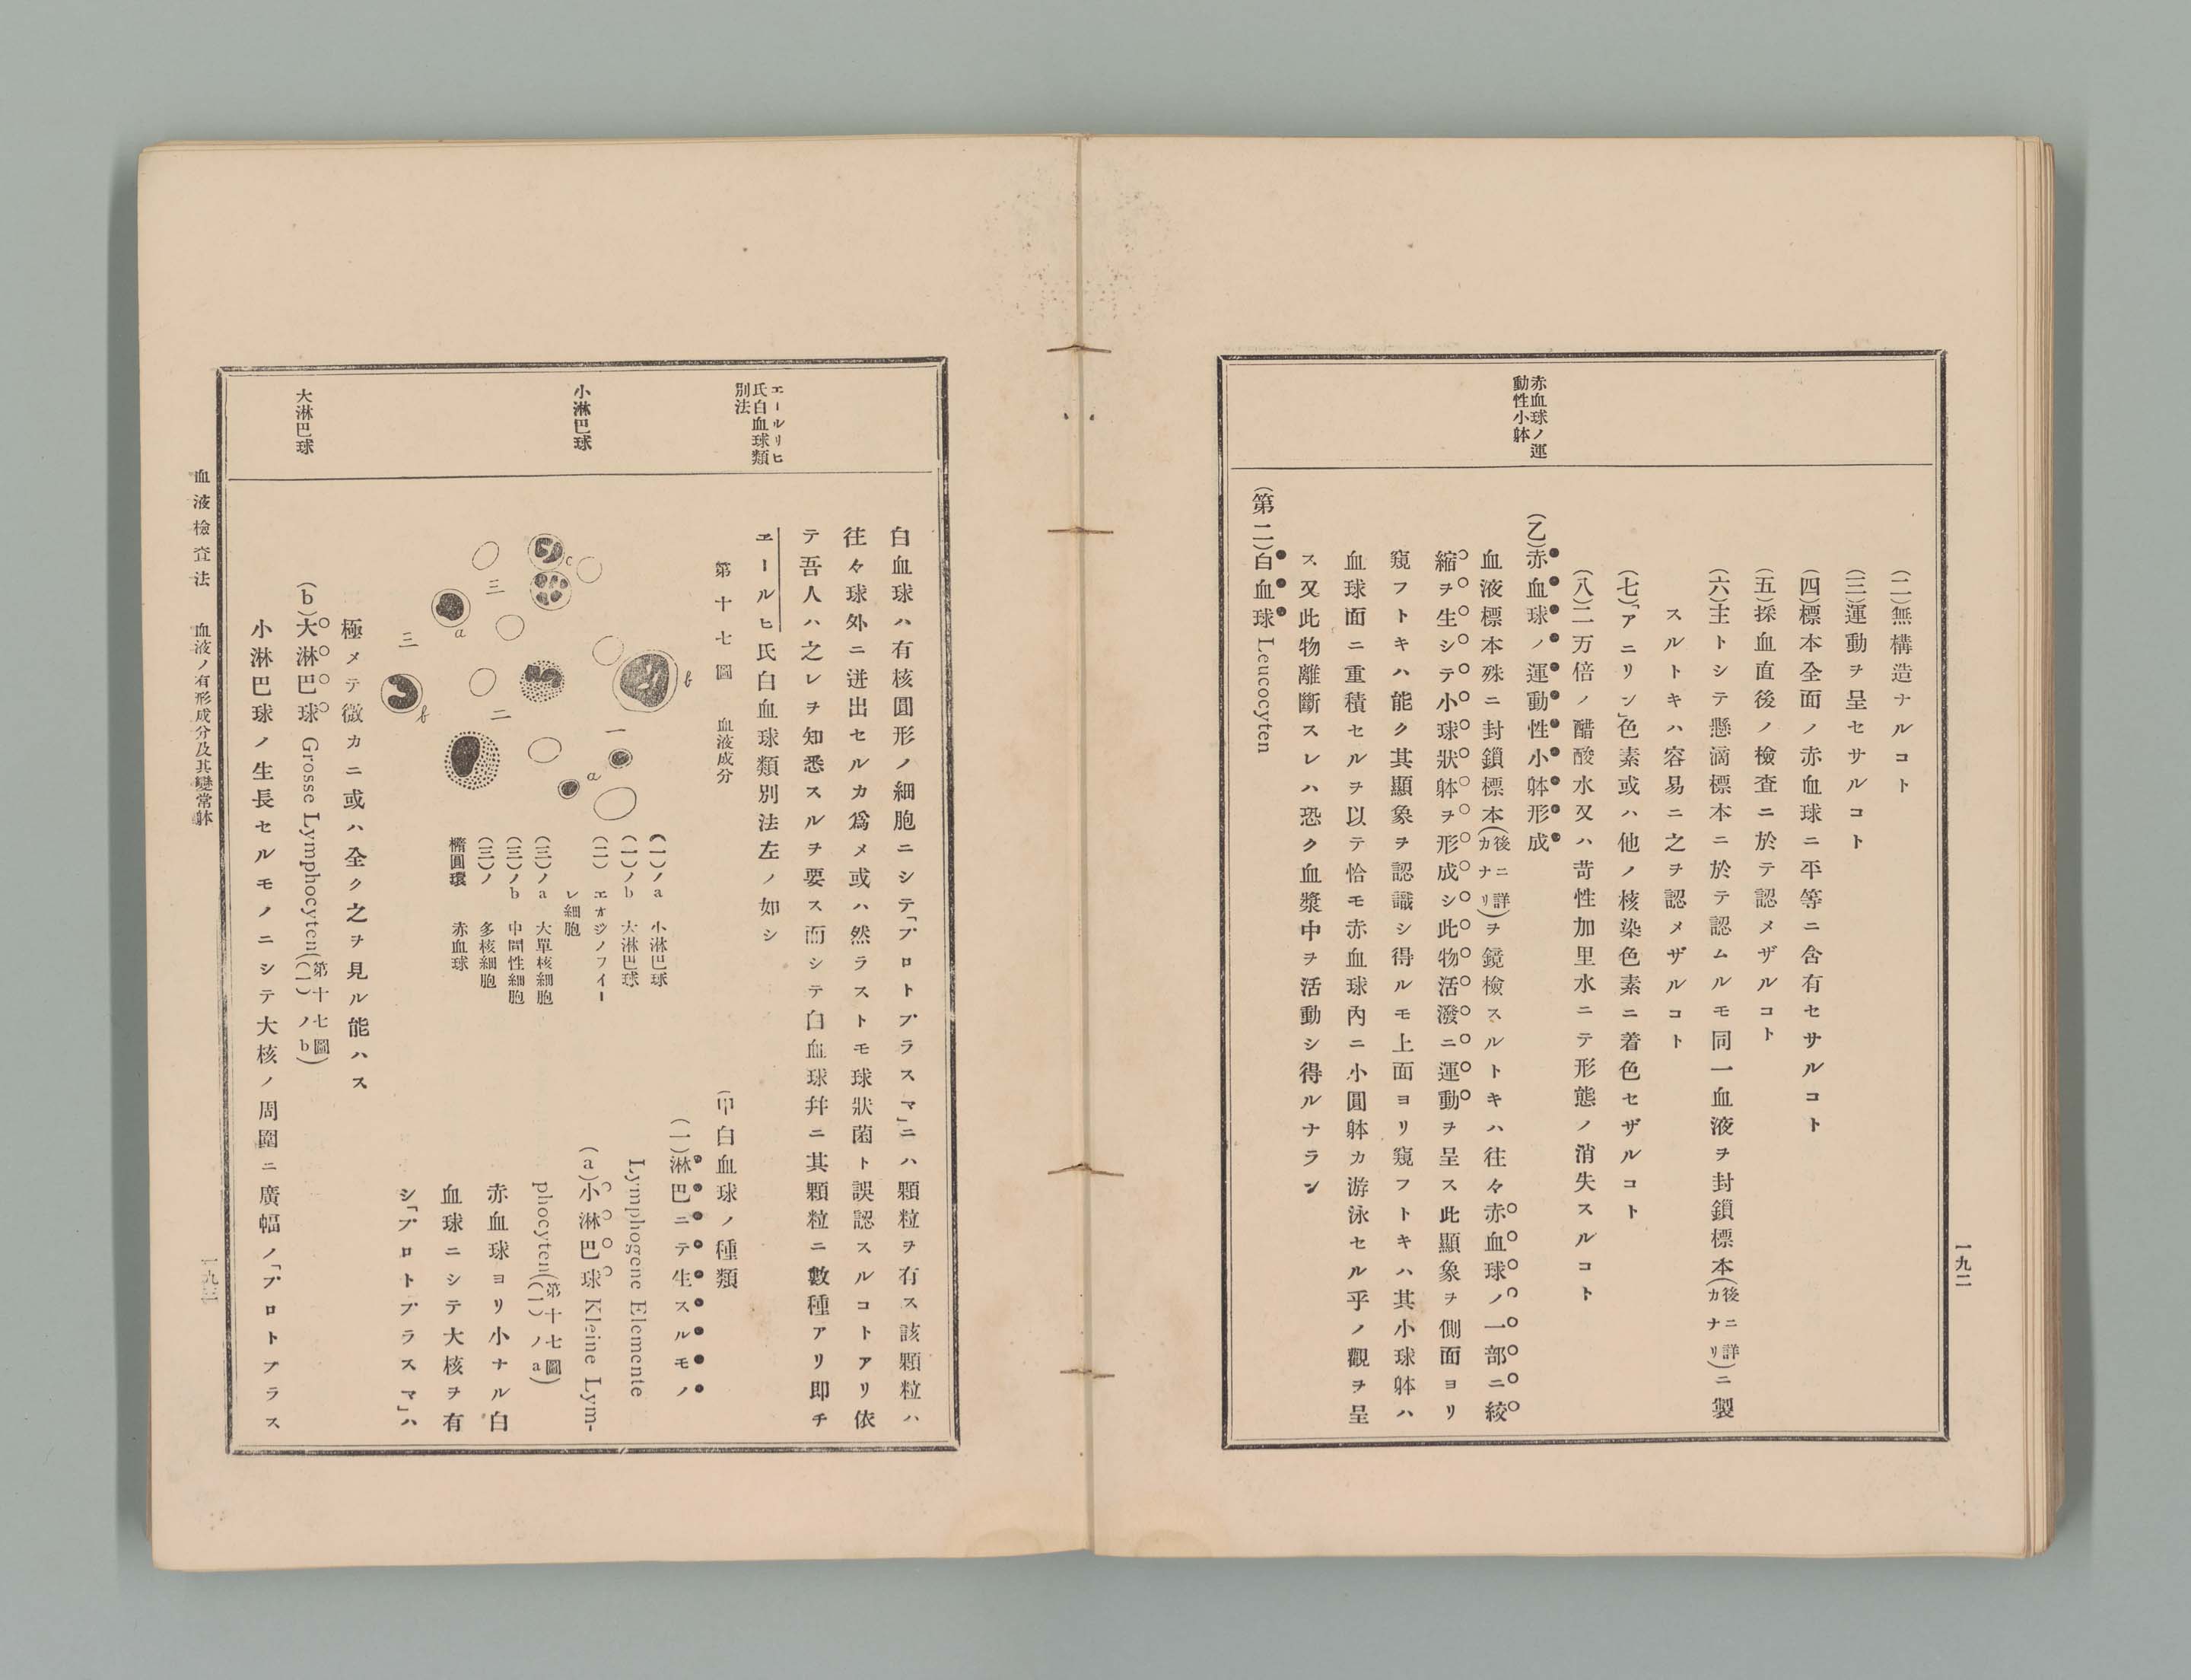 赤血球ノ運
動性小躰
(二)無構造ナルコト
(三)運動ヲ呈セサルコト
(四)標本全面ノ赤血球ニ平等ニ含有セサルコト
(五)採血直後ノ檢査ニ於テ認メザルコト
(六)主トシテ懸滴標本ニ於テ認ムルモ同一血液ヲ封鎖標本(後ニ詳カナリ)ニ製
スルトキハ容易ニ之ヲ認メザルコト
(七)「アニリン」色素或ハ他ノ核染色素ニ着色セザルコト
(八)二万倍ノ醋酸水又ハ苛性加里水ニテ形態ノ消失スルコト
(乙)赤血球ノ運動性小躰形成
血液標本殊ニ封鎖標本(後ニ詳カナリ)ヲ鏡檢スルトキハ往々赤血球ノ一部ニ絞
縮ヲ生シテ小球狀躰ヲ形成シ此物活潑ニ運動ヲ呈ス此顯象ヲ側面ヨリ
窺フトキハ能ク其顯象ヲ認識シ得ルモ上面ヨリ窺フトキハ其小球躰ハ
血球面ニ重積セルヲ以テ恰モ赤血球內ニ小圓躰カ游泳セル乎ノ觀ヲ呈
ス又此物離斷スレハ恐ク血漿中ヲ活動シ得ルナラン
(第二)白血球 Leucocyten
一九二
エールリヒ
氏白血球類
別法
小淋巴球
大淋巴球
白血球ハ有核圓形ノ細胞ニシテ「プロトプラスマ」ニハ顆粒ヲ有ス該顆粒ハ
往々球外ニ迸出セルカ爲メ或ハ然ラストモ球狀菌ト誤認スルコトアリ依
テ吾人ハ之レヲ知悉スルヲ要ス而シテ白血球幷ニ其顆粒ニ數種アリ即チ
エールヒ氏白血球類別法左ノ如シ
第十七圖 血液成分
一
a
b
二
三
a
b
c
三
(一)ノa 小淋巴球
(一)ノb 大淋巴球
(二) エオジノフイー
レ細胞
(三)ノa 大單核細胞
(三)ノb 中間性細胞
(三)ノ 多核細胞
橢圓環 赤血球
(甲白血球ノ種類
(一)淋巴ニテ生スルモノ
Lymphogene Elemente
(a)小淋巴球 Kleine Lym-
phocyten(第十七圖(一)ノa)
赤血球ヨリ小ナル白
血球ニシテ大核ヲ有
シ「プロトプラスマ」ハ
極メテ微カニ或ハ全ク之ヲ見ル能ハス
(b)大淋巴球 Grosse Lymphocyten(第十七圖(一)ノb)
小淋巴球ノ生長セルモノニシテ大核ノ周圍ニ廣幅ノ「プロトプラス
血液檢査法 血液ノ有形成分及其變常躰
一九三